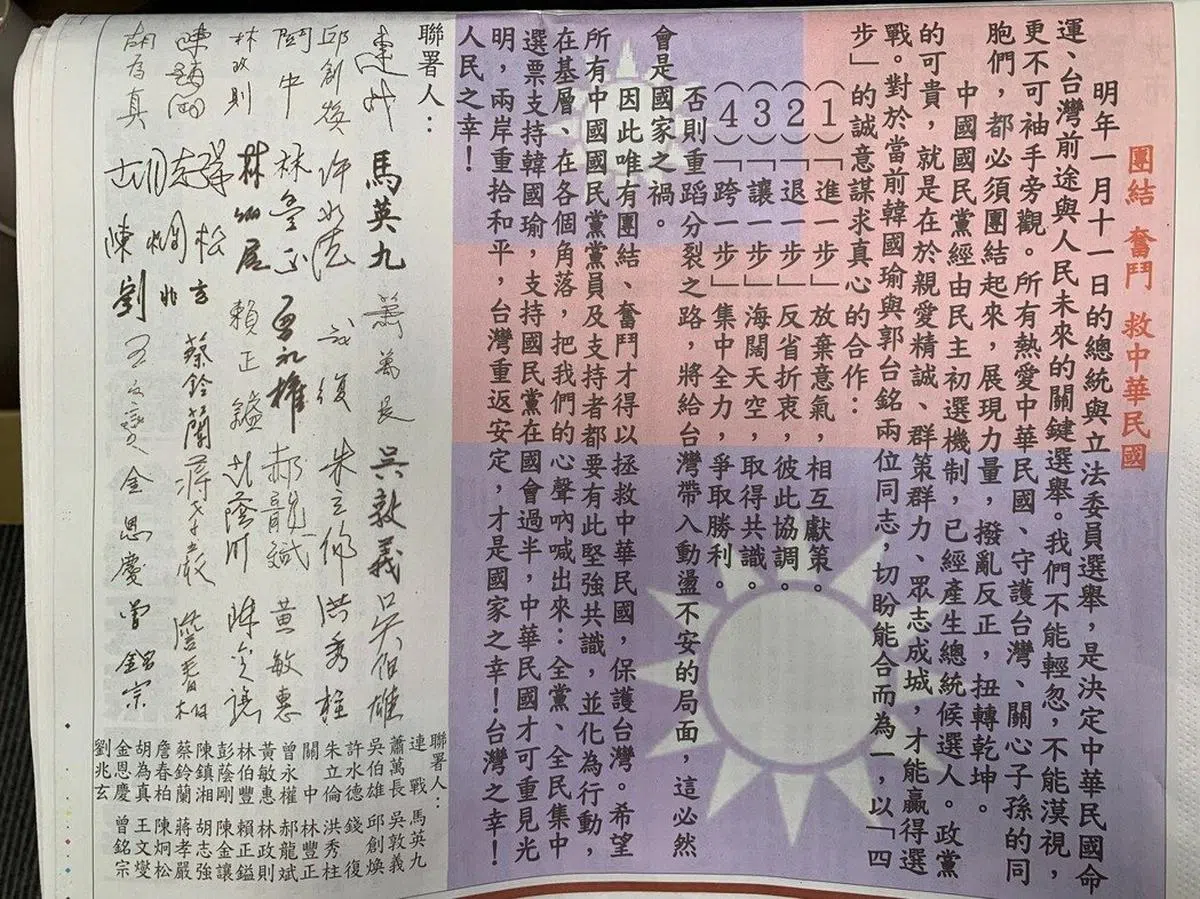 團結 奮鬥 救中華民國
明年一月十一日的總統與立法委員選舉，是決定中華民國命
運、台灣前途與人民未來的關鍵選舉。我們不能輕忽，不能漠視，
更不可袖手旁觀。所有熱愛中華民國、守護台灣、關心子孫的同
胞們，都必須團結起來，展現力量，撥亂反正，扭轉乾坤。
中國國民黨經由民主初選機制，已經產生總統候選人。政黨
的可貴，就是在於親愛精誠、群策群力、眾志成城，才能贏得選
戰。對於當前韓國瑜與郭台銘兩位同志，切盼能合而為一，以「四
步」的誠意謀求真心的合作：
（1）「進一步」放棄意氣，相互獻策。
（2）「退一步」反省折衷，彼此協調。
（3）「讓一步」海闊天空，取得共識。
（4）「跨一步」集中全力，爭取勝利。
否則重蹈分裂之路，將給台灣帶入動盪不安的局面，這必然
會是國家之禍。
因此唯有團結、奮鬥才得以拯救中華民國，保護台灣。希望
所有中國國民黨黨員及支持者都要有此堅強共識，並化為行動，
在基層、在各個角落，把我們的心聲吶喊出來：全黨、全民集中
選票支持韓國瑜，支持國民黨在國會過半，中華民國才可重見光
明，兩岸重拾和平，台灣重返安定，才是國家之幸！台灣之幸！
人民之幸！
聯署人：
連戰 馬英九 蕭萬長 吳敦義 吳伯雄
邱創煥 許水德 錢復 朱立倫 洪秀柱
關中 林豐正 曾永權 郝龍斌 黃敏惠
林政則 林伯豐 賴正鎰 彭蔭剛 陳金讓
陳鎮湘 胡志強 蔡鈴蘭 蔣孝嚴 詹春柏
胡為真 陳炯松 劉兆玄 王文燮 金恩慶 曾銘宗
聯署人：
連戰 馬英九
蕭萬長 吳敦義
吳伯雄 邱創煥
許水德 錢復
朱立倫 洪秀柱
關中 林豐正
曾永權 郝龍斌
黃敏惠 林政則
林伯豐 賴正鎰
彭蔭剛 陳金讓
陳鎮湘 胡志強
蔡鈴蘭 蔣孝嚴
詹春柏 陳炯松
胡為真 王文燮
金恩慶 曾銘宗
劉兆玄